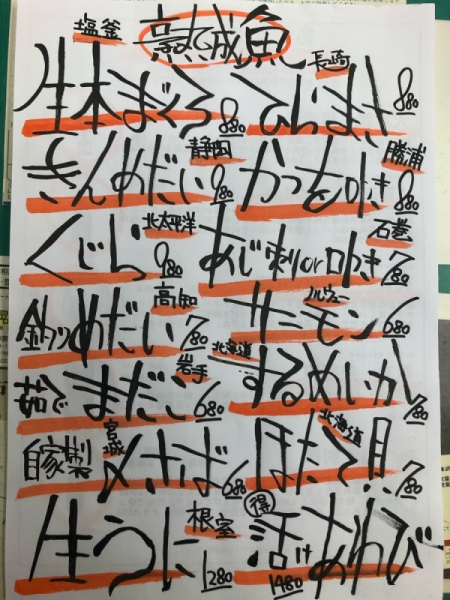 熟成魚
塩釜 生本まぐろ 880
長崎 ひらまさ 880
静岡 きんめだい 980
勝浦 かつを叩き 880
北太平洋 くじら 980
石巻 あじ刺or叩き 780
高知 釣りめだい 780
ノルウェー サーモン 680
岩手 茹で まだこ 680
北海道 するめいか 780
宮城 自家製 〆さば 680
北海道 ほたて貝 780
根室 生うに 1280
得 活け あわび 1480